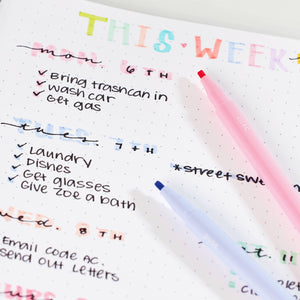 THIS WEEK
mon. 6TH
Bring trashcan in
wash car
Get gas
tues. 7TH
Laundry
Dishes
Get glasses
Give Zoe a bath
*street
wed. 8TH
Email code AC.
Send out Letters
11